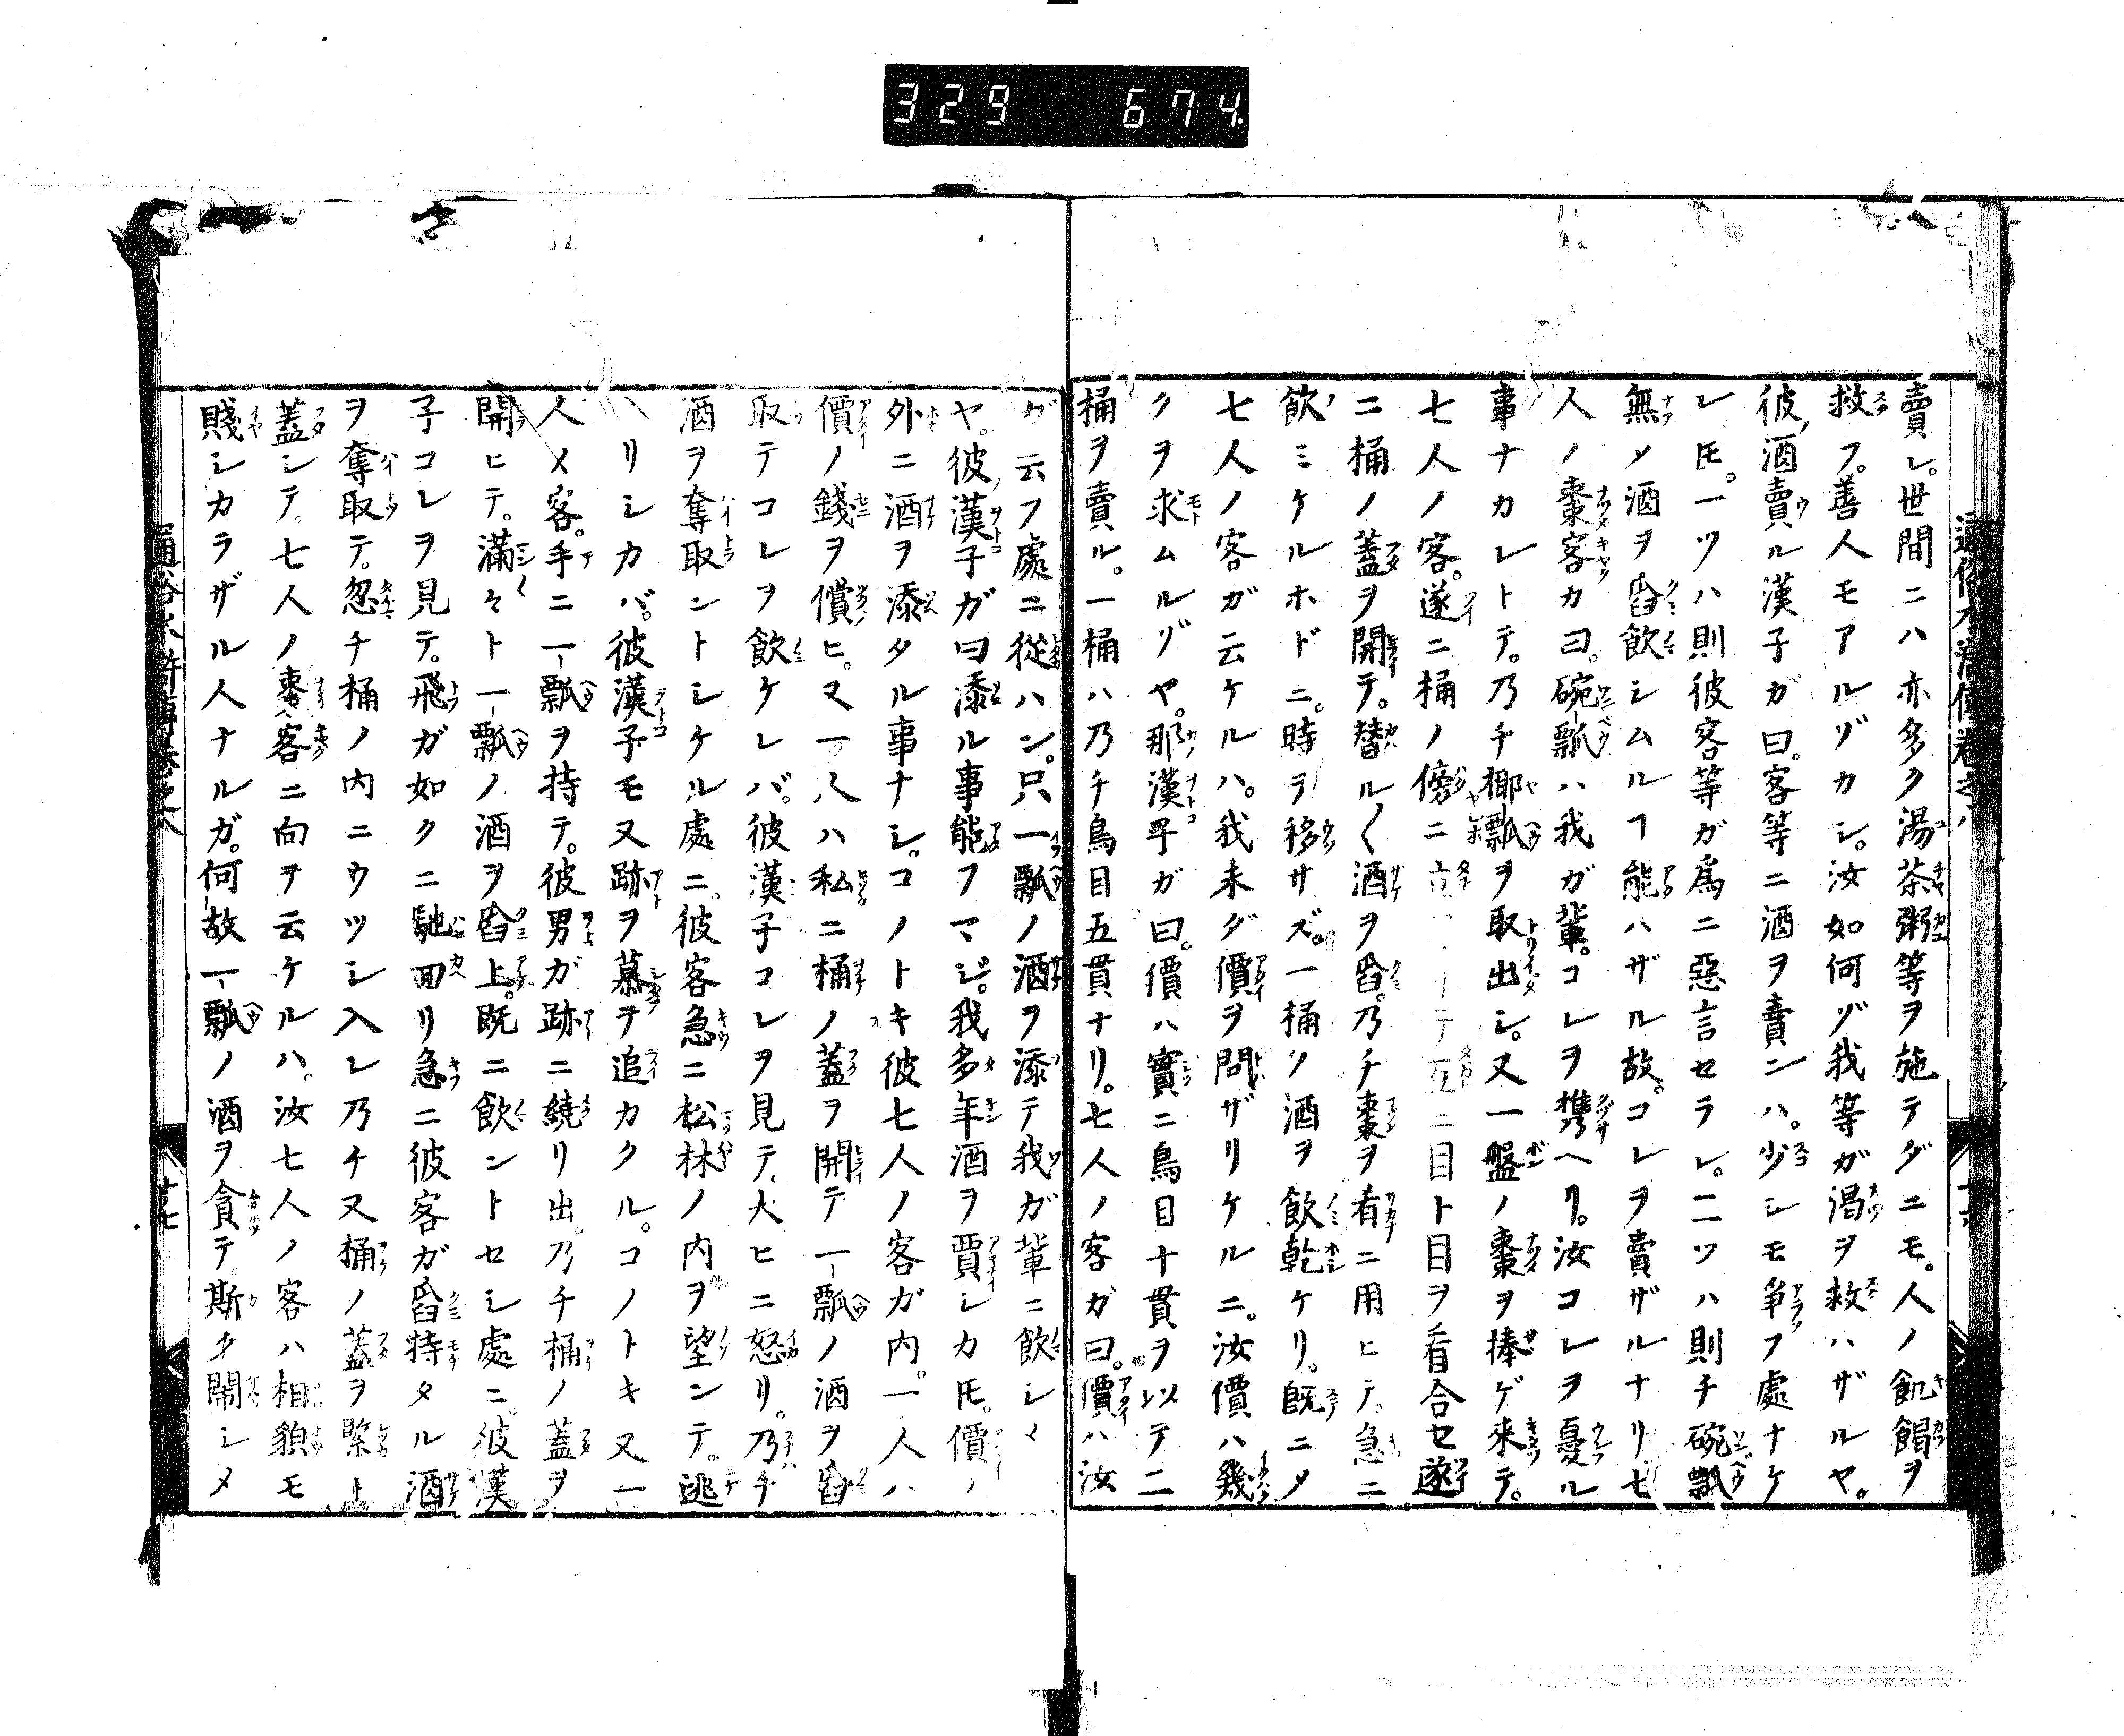 329 674
賣レ。世間ニハ亦多ク湯茶粥等ヲ施テダニモ。人ノ飢餲ヲ
救フ。善人モアルゾカシ。汝如何ゾ我等ガ渇ヲ救ハザルヤ。
彼酒賣ル漢子ガ曰。客等ニ酒ヲ賣ンハ。少シモ爭フ處ナケ
レ𪜈。一ツハ則彼客等ガ爲ニ惡言セラレ。二ツハ則チ碗瓢
無ソ酒ヲ舀飲シムルヿ能ハザル故。コレヲ賣ザルナリ七
人ノ棗客カ曰。碗瓢ハ我ガ輩。コレヲ攜ヘリ。汝コレヲ憂ル
事ナカレトテ。乃チ椰瓢ヲ取出シ。又一盤ノ棗ヲ捧ゲ來テ。
七人ノ客。遂ニ桶ノ傍ニ立テ互ニ目ト目ヲ看合セ遂
ニ桶ノ蓋ヲ開テ。替ル〱酒ヲ舀。乃チ棗ヲ肴ニ用ヒテ。急ニ
飲ミケルホドニ。時ヲ移サズ。一桶ノ酒ヲ飲乾ケリ。既ニメ
七人ノ客ガ云ケルハ。我未ダ價ヲ問ザリケルニ。汝價ハ幾
クヲ求ムルゾヤ。那漢子ガ曰。價ハ實ニ鳥目十貫ヲ以テ二
桶ヲ賣ル。一桶ハ乃チ鳥目五貫ナリ。七人ノ客ガ曰。價ハ汝
ガ云フ處ニ從ハン。只一瓢ノ酒ヲ添テ我ガ輩ニ飲シメ
ヤ。彼漢子ガ曰添ル事能フマジ。我多年酒ヲ賈シカ𪜈。價ノ
外ニ酒ヲ添タル事ナシ。コノトキ彼七人ノ客ガ内。一人ハ
價ノ錢ヲ償ヒ。又一人ハ私ニ桶ノ蓋ヲ開テ一瓢ノ酒ヲ舀
取テコレヲ飲ケレバ。彼漢子コレヲ見テ。大ヒニ怒リ。乃チ
酒ヲ奪取ントシケル處ニ。彼客急ニ松林ノ内ヲ望ンデ。逃
ハリシカバ。彼漢子モ又跡ヲ慕テ追カクル。コノトキ又一
人メ客。手ニ一瓢ヲ持テ。彼男ガ跡ニ繞リ出。乃チ桶ノ蓋ヲ
開ヒテ。滿々ト一瓢ノ酒ヲ舀上。既ニ飲ントセシ處ニ。彼漢
子コレヲ見テ。飛ガ如クニ馳回リ急ニ彼客ガ舀持タル酒
ヲ奪取テ。忽チ桶ノ内ニウツシ入レ乃チ又桶ノ蓋ヲ緊ト
蓋シテ。七人ノ棗客ニ向ヲ云ケルハ。汝七人ノ客ハ相貌モ
賤シカラザル人ナルガ。何故一瓢ノ酒ヲ貪テ斯ク鬧シメ
通俗水滸傳卷之八
廿七